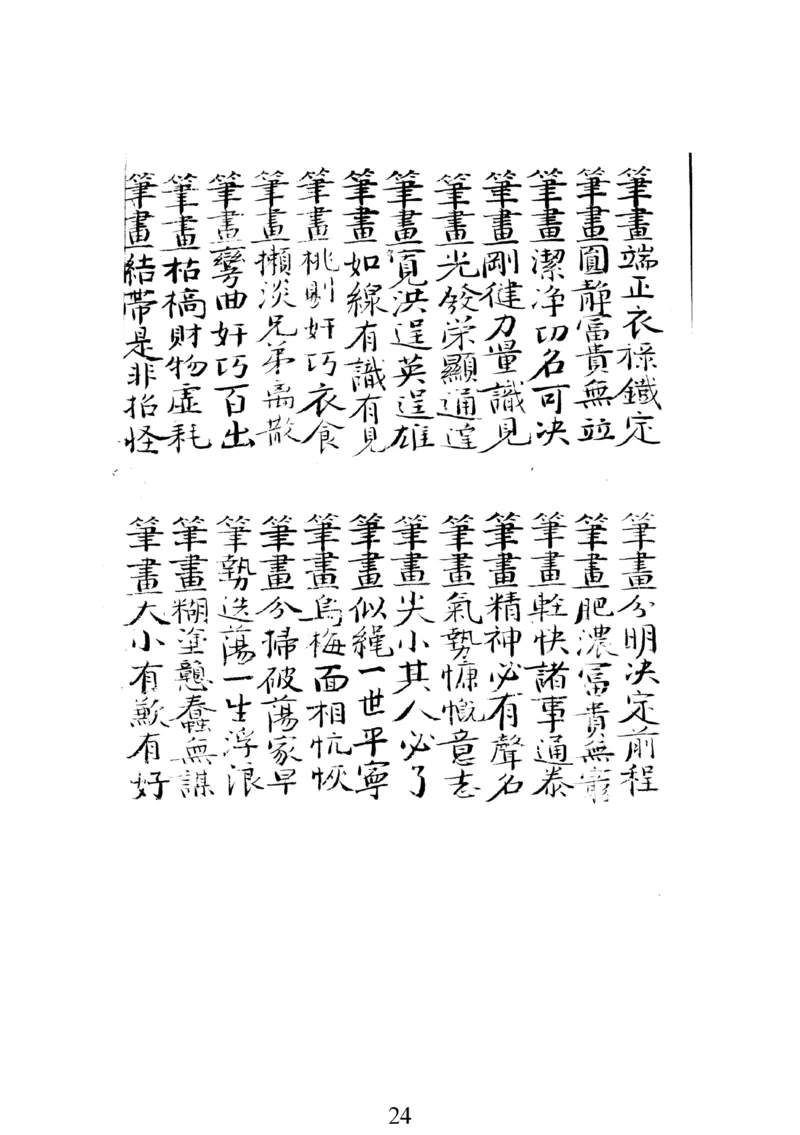 筆畫端正衣祿鐵定
筆畫圓靜冨貴無竝
筆畫潔淨功名可决
筆畫剛健力量識見
筆畫光發荣顯通達
筆畫寬洪逞英逞雄
筆畫如線有識有見
筆畫桃剔奸巧衣食
筆畫懶淡兄弟离散
筆畫彎曲奸巧百出
筆畫枯槁財物虛耗
筆畫結帶是非招怪
筆畫分明決定前程
筆畫肥濃冨貴無窮
筆畫輕快諸事通泰
筆畫精神必有聲名
筆畫氣勢慷慨意志
筆畫尖小其人必了
筆畫似繩一世平寧
筆畫烏梅面相忼恢
筆畫分掃破蕩家早
筆勢迭蕩一生浮浪
筆畫糊塗戇蠢無謀
筆畫大小有歉有好
24